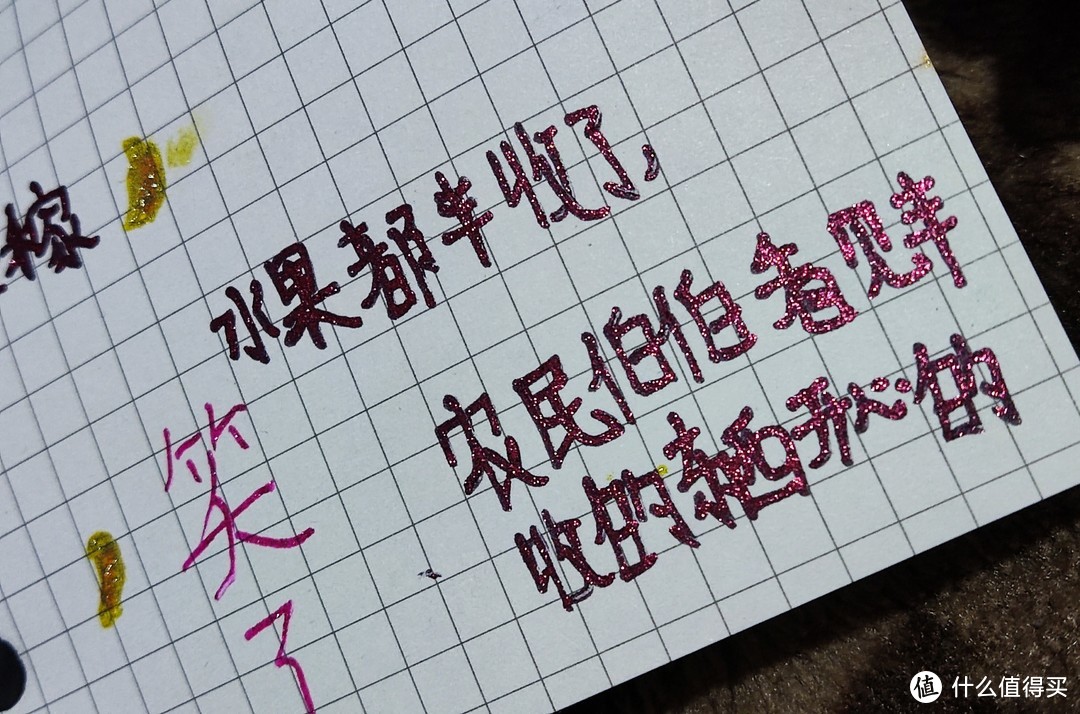 稼
水果都丰收了,
农民伯伯看见丰
收的超开心的
笑了
值 什么值得买